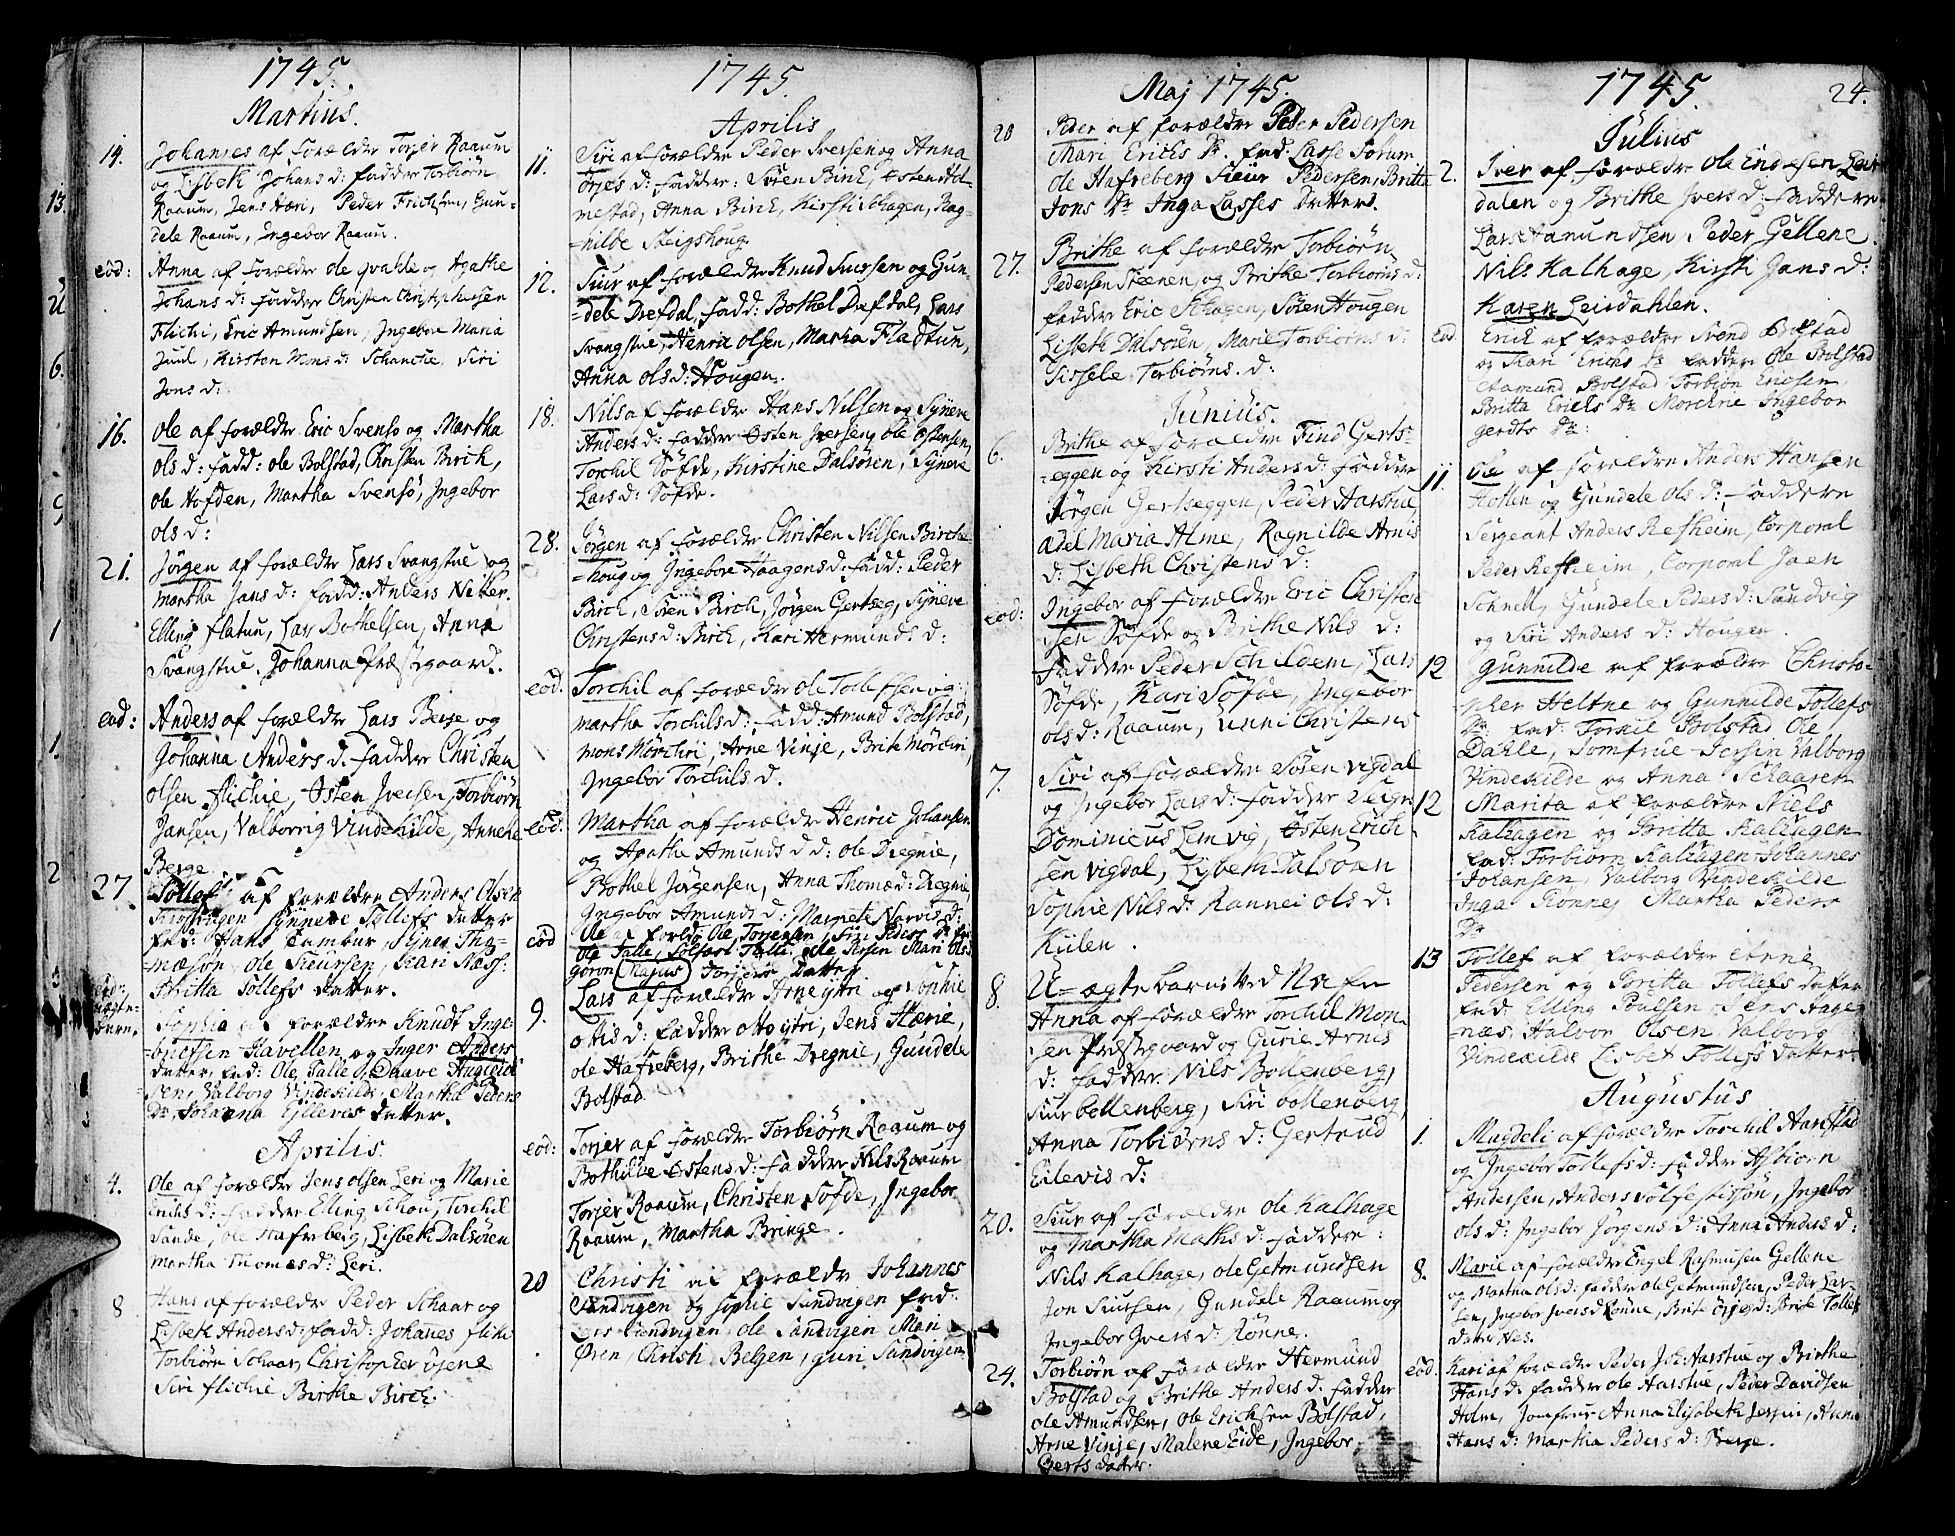 1745.
Martius.
14. Johannes af forældre Torjer Raaum
og Lisbeth Johans d: fadder Torbiørn
Raaum, Jens Hæri, Peder Erichsen, Gun-
dele Raaum, Ingebor Raaum.
eod: Anna af forældre ole qvahle og Agathe
Johans d: fadder Christen Christophersen
Flichi, Eric Amundsen, Ingebor Maria
Juul, Kirsten Mons d: Schancke, Siri
Jons d:
16. Ole af forældre Eric Svensø og Martha
ols d: fadd: ole Bolstad, Christen Birch,
ole Hofden, Martha Svensø, Ingebor
ols d:
21. Jörgen af forældre Lars Svangstue og
Martha Jans d: fadd: Anders
Elling flatun, Lars Bothelsen, Anna
Svangstue, Johanna Præstgaard.
eod: Anders af forældre Lars Berge og
Johanna Anders d. faddere Christen
olsen flichie, Østen Iversen, Torbiørn
Jansen, Valborrig Vindekilde, Anneke
Berge.
27 Tollef af forældre Anders Olsen
Synneve Tollefs datter
fad: Hans Tambur, Synev Tho-
mæsøn ole Siursen, Kari Næss:
Britta Tollefs datter.
Sophia af forældre Knudt Inge-
brictsen Havellen og Inger Anders
datter, fad: Ole Palle,
Sen, Valborg Vindekilde, Martha Peders
Dr. Johanna Ejlevès datter.
Aprilis.
4. Ole af forældre Jens olsen Leri og Marie
Erichs d: fadder Elling Schou, Torchil
Sande, ole Hafreberg, Lisbeth Dalsøren
Martha Thomæs d: Leri.
8 Hans af forældre Peder Schaar og
Lisbeth Anders d: fadd: Johanes flihi
Torbiørn Schaar, Christopher øiene
Siri flichie Birthe Birch.
1745.
Aprilis
11. Siri af forældre Peder Iversen og Anna
Örjes d: fadder: Sören Birch, østen
mestad, Anna Birch, Kirsti Schagen, Rag-
=nilde Steigshoug.
12. Siur af forældre Knud Siursen og Gun-
=dele Drefdal, fadd: Bothel Drefdal, Lars
Svangstue, Henric olsen, Martha Fladtun,
Anna ols d: Hougen.
18. Nils af forældre Hans Nilsen og Synneve
Anders d: fadder Østen Iversen, ole østensen,
Torchil Söfde, Kirstine Dalsören, Synneve
Lars d: Söfde.
28. Jörgen af forældre Christen Nilsen Birche
=houg og Ingebor Haagens d: fadd: Peder
Birch, Sören Birch, Jörgen Gertseg, Synneve
Christens d: Birch, Kari Hermunds d:
eod. Torchil af forældre ole Tollefsen og
martha Torchils d: fadd: Amund Bolstad,
mons Mörchri, Arne Vinje, Brite Mörchri,
Ingebor Torchils d.
eod: Martha af forældre Henric Johansen
og Agathe Amunds d: ole Dregnie,
Bothel Jörgensen, Anna Thomæ d: Dregnie,
Ingebor Amunds d: Margrete Narvis d:
eod Ole af forldr Ole Torjersen, Siri Peders Dr
Ole Palle, ole Iversen Mari Ols
goron (Majus) Torjers Datter
9. Lars af forældre Arne ytri og Sophie
ottis d: fadder otto ytri, Jens Hærie,
ole Hafreberg, Brithe Dregnie, Gundele
Bolstad
eod: Torjer af forældre Torbiörn Raaum og
Bothilde østens d: fadder Nils Raaum
Torjer Raaum, Christen Söfde, Ingebor
Raaum, Martha Bringe.
20 Christi af forældre Johannes
Sandvigen og sophie Sandvigen fad:
Lars Sandvigen, ole Sandvigen Mari
Øren, Christi Belgen, guri Sandvigen
Maj 1745.
20 Peder af forældre Peder Pedersen
Mari Erichs Dr. fad: Lasse Sorum
ole Hafreberg Sieur Pedersen, Britta
Jons Dr Inga Lasses Datters.
27. Brithe af forældre Torbiørn
Pedersen Steenen, og Brithe Torbiørns d:
faddere Eric Schagen, Sören Hougen
Lisbeth Dalsören, Marie Torbiørns d:
Sissele Torbiørns. d:
Junius.
6. Brithe af forældre Find Gerts-
=eggen og Kirsti Anders d: faddere
Jörgen Gertseggen, Peder Aarstue,
adel Maria Alme, Ragnilde Arnis
d: Lisbeth Christens d:
eod: Ingebor af forældre Eric Christen
sen Söfde og Brithe Nils d:
faddere Peder Schildem, Lars
Söfde, Kari Söfde, Ingebor
ols d: Raaum, Unni Christens
7. Siri af forældre Sören Vigdal
og Ingebor Lars d: faddere Seign
Dominicus Lemvig, Østen Erich-
sen Vigdal, Lisbeth Dalsören
Sophie Nils d: Rannei ols d:
Kiilen.
8. U=ægte barn ved Nafn
Anna af forældre Torchil Mon-
sen Præstgaard og Gurie Arnis
d: fadder Nils Bollenberg,
Siur bollenberg, Siri bollenberg,
Anna Torbiörns d: Gertrud
Eilevis d:
20. Siur af forældre ole Kalhage
og Martha Mathis d: faddere:
Nils Kalhage, ole Getmundsen
Jon Siursen, Gundele Raaum og
Ingebor Ivers d: Rönne.
24. Torbiørn af forældre Hermund
Bolstad og Brithe Anders d. faddere
ole Amundsen, ole Erichsen Bolstad,
Arne Vinje, Malene Eide, Ingebor
Gerts datter.
1745. 24.
Julius
2. Iver af forældre Ole Endresen Leir
dalen og Brithe Ivers d: faddere
Lars Hamundsen Peder Gellene
Nils Kalhage, Kirsti Jans d:
Karen Leirdahlen.
eod. Erick af forældre Svend Bolstad
og Kari Erichs Dr faddere Ole Bolstad
Aamund Bolstad Torbiön Ericsen
Britta Erichs Dr Morckrie Ingebor
gerdts Dr:
11. Ole af forældre Anders Hansen
Hollen og Gundele ols d: faddere
Sergeant Anders Refheim, Corporal
Peder Refheim, Corporal Jaen
Schnell, Gundele Peders d: Sandvig
og Siri Anders d: Hougen.
12 Gunnilde af forældre Christo-
pher Heltne og Gunnilde Tollefs
Dr. fad: Torkil Bolstad Ole
Dahle, Jomfrue Jersin Valborg
Vindekilde og Anna Schaaren
12 Marita af forældre Niels
Kalhagen og Britta Kalhagen
fad: Torbiørn Kalhagen Johannes
Johansen, Valborg Vindekilde
Inga Ronnej Martha Peders
Dr
13 Tollef af forældre Anne
Pedersen og Britta Tollefs datter
fad: Elling Poulsen, Jens Hage
næs, Halvor Olsen Valborg
Vindekilde Lisbet Tollefs datter
Augustus
1. Magdeli af forældre Torchil Harestad
og Ingebor Tollefs d: fadder Asbiörn
Andersen, Anders Sölfestissön, Ingebor
ols d: Ingebor Jörgens d: Anna Anders d:
8. Marie af forældre Engel Rasmusen Gellene
og Martha ols d: faddere ole Getmundsen, Peder Lar-
sen, Ingebor Ivers d Rönne, Brite Örjes d: Brite Tollefs
dater Nes.
eod. Kari af forældre Peder Joh: Aarstue og Birthe
Hans d: faddere ole Aarstue, Peder Davidsen
Holm, Jomfrue Anna Elisabeth Jersin, Anna
Hans d: Martha Peders d: Berge.